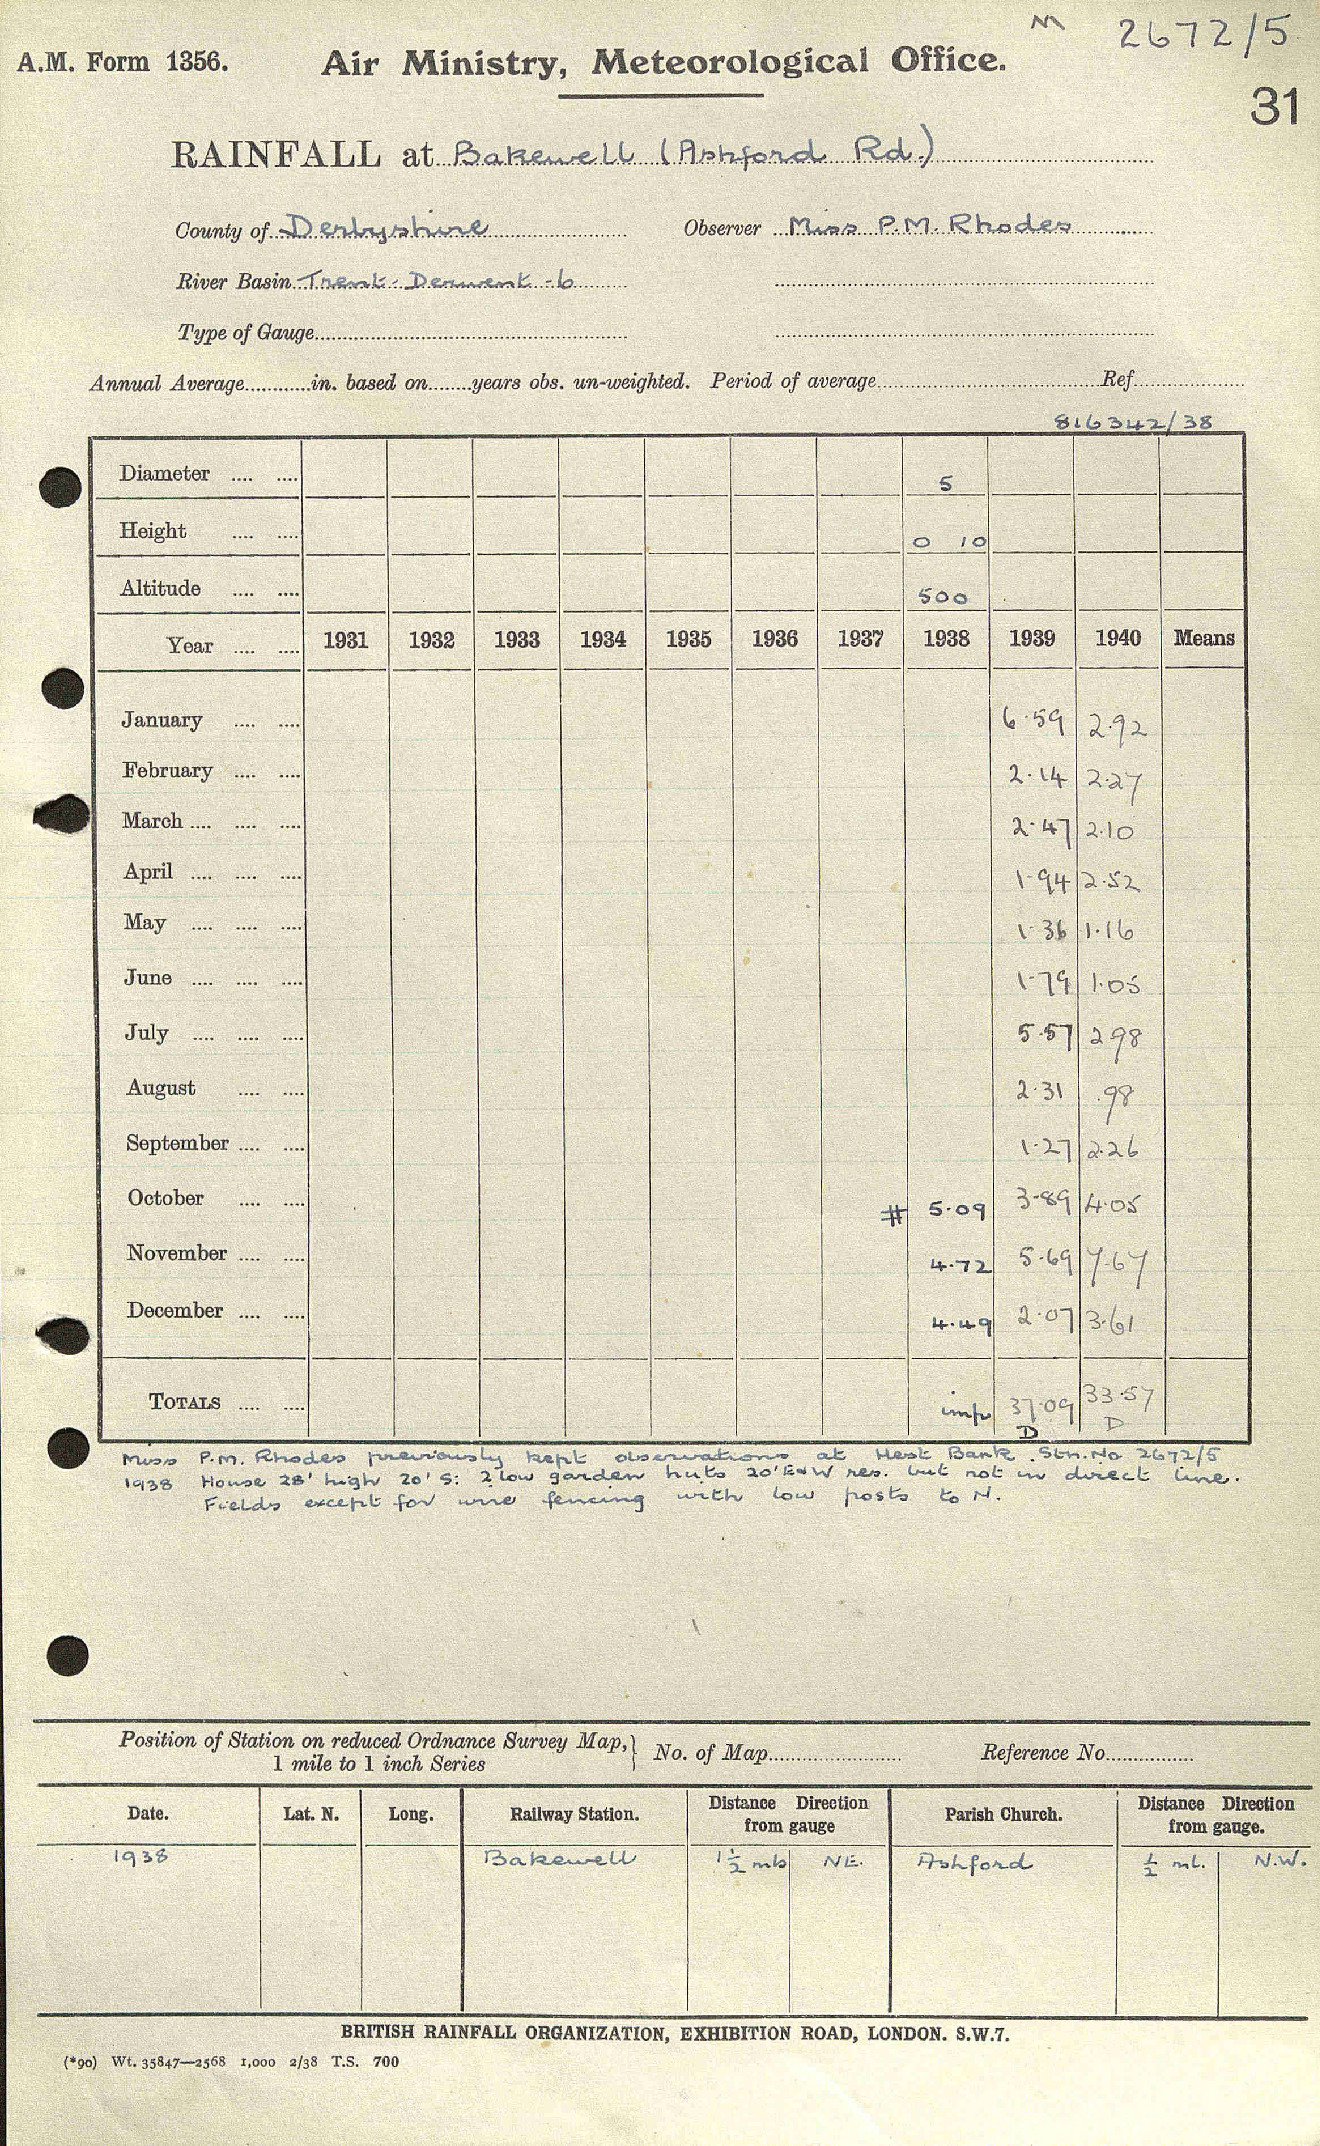 M 2672/5
A.M. Form 1356. Air Ministry, Meteorological Office.
31
RAINFALL at Bakewell (Ashford Rd.)
County of Derbyshire Observer Miss P.M. Rhodes
River Basin Trent - Derwent - 6
Type of Gauge
Annual Average in. based on years obs. un-weighted. Period of average Ref.
816342/38
Diameter 5
Height 0 10
Altitude 500
Year 1931 1932 1933 1934 1935 1936 1937 1938 1939 1940 Means
January 6.59 2.92
February 2.14 2.27
March 2.47 2.10
April 1.94 2.52
May 1.36 1.16
June 1.79 1.05
July 5.57 2.98
August 2.31 .98
September 1.27 2.26
October # 5.09 3.89 4.05
November 4.72 5.69 7.67
December 4.49 2.07 3.61
TOTALS imp 37.09 33.57
D D
Miss P.M. Rhodes previously kept observations at Hest Bank. Stn. No 2672/5
1938 House 28' high 20' S: 2 low garden huts 20' E & W res. but not in direct line.
Fields except for wire fencing with low posts to N.
Position of Station on reduced Ordnance Survey Map, 1 mile to 1 inch Series } No. of Map Reference No.
Date. Lat. N. Long. Railway Station. Distance Direction from gauge Parish Church. Distance Direction from gauge.
1938 Bakewell 1½ mls NE. Ashford ½ ml. N.W.
BRITISH RAINFALL ORGANIZATION, EXHIBITION ROAD, LONDON. S.W.7.
(*90) Wt. 35847—2568 1,000 2/38 T.S. 700